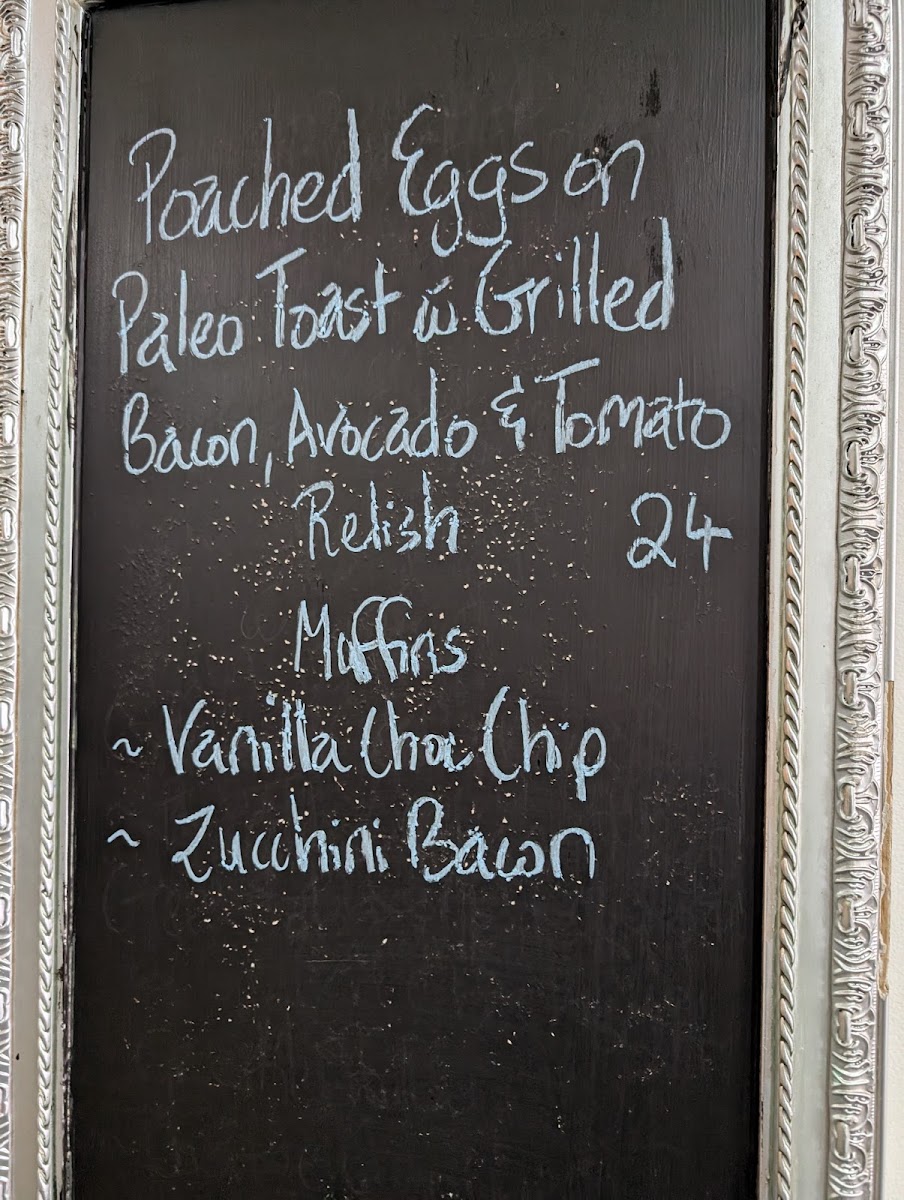 Poached Eggs on
Paleo Toast w Grilled
Bacon, Avocado & Tomato
Relish 24
Muffins
~ Vanilla Choc Chip
~ Zucchini Bacon